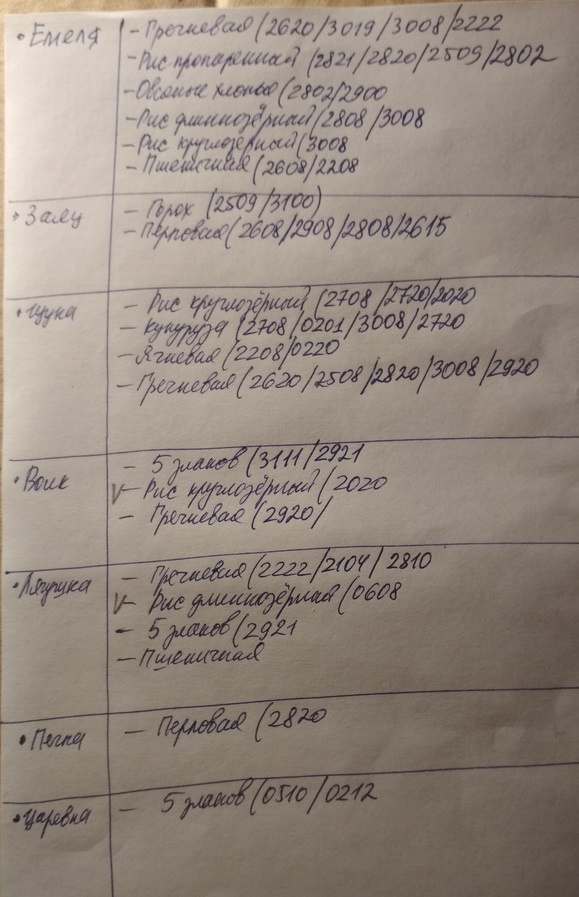 • Емеля - Гречневая (2620/3019/3008/2222
- Рис пропаренный (2821/2820/2509/2802
- Овсяные хлопья (2802/2900
- Рис длиннозёрный (2808/3008
- Рис круглозёрный (3008
- Пшеничная (2608/2208
• Заяц - Горох (2509/3100)
- Перловая (2608/2908/2808/2615
• Щука - Рис круглозёрный (2708/2720/2020
- Кукуруза (2708/0201/3008/2720
- Ячневая (2208/0220
- Гречневая (2620/2508/2820/3008/2920
• Волк - 5 злаков (3111/2921
V - Рис круглозёрный (2020
- Гречневая (2920/
• Лягушка - Гречневая (2222/2104/2810
V - Рис длиннозёрная (0608
- 5 злаков (2921
- Пшеничная
• Печка - Перловая (2820
• Царевна - 5 злаков (0510/0212